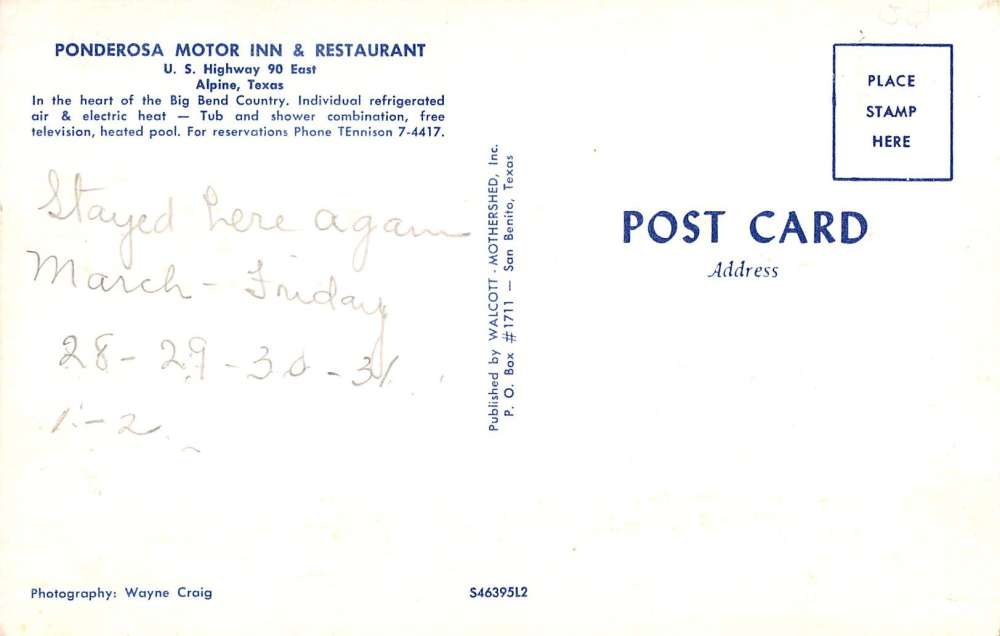 PONDEROSA MOTOR INN & RESTAURANT
U. S. Highway 90 East
Alpine, Texas
In the heart of the Big Bend Country. Individual refrigerated
air & electric heat — Tub and shower combination, free
television, heated pool. For reservations Phone TEnnison 7-4417.
Stayed here again
March - Friday
28 - 29 - 30 - 31
1 - 2
Published by WALCOTT - MOTHERSHED, Inc.
P. O. Box #1711 — San Benito, Texas
PLACE
STAMP
HERE
POST CARD
Address
Photography: Wayne Craig
S46395L2